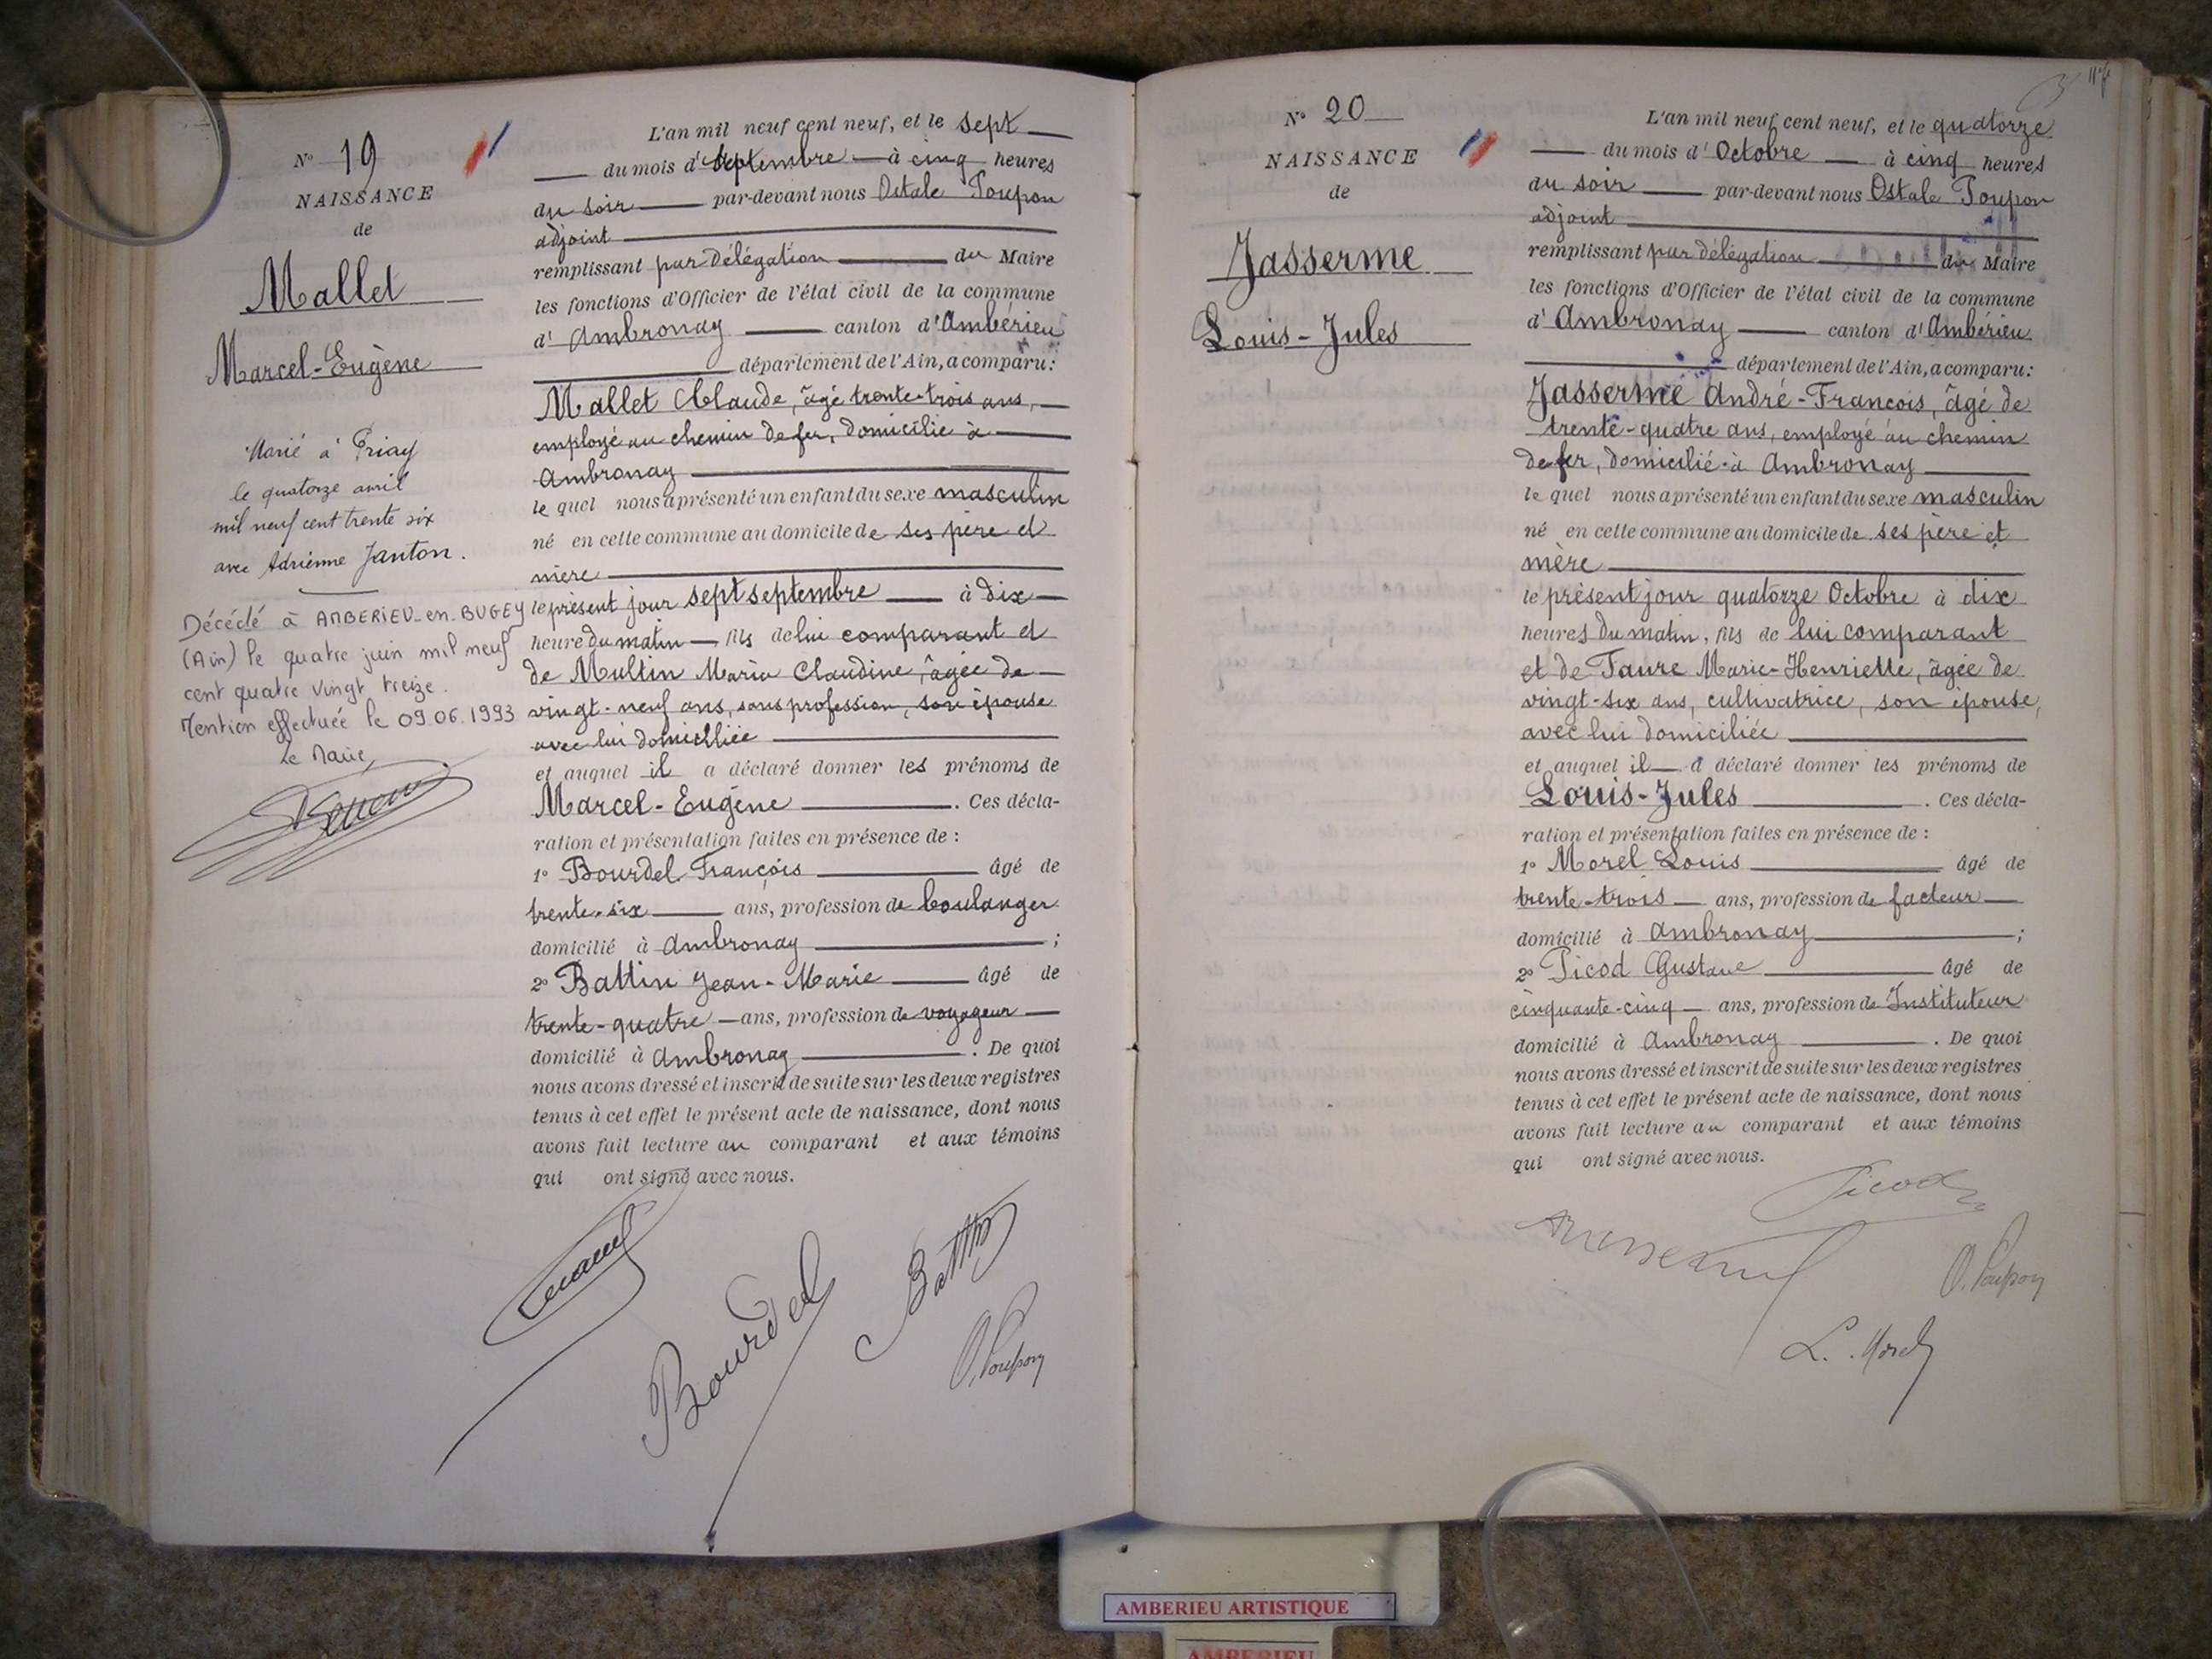 N° 19
NAISSANCE
de
Mallet
Marcel-Eugène
Marié à Priay
le quatorze avril
mil neuf cent trente six
avec Adrienne Janton.
Décédé à AMBERIEU-en-BUGEY
(Ain) le quatre juin mil neuf
cent quatre vingt treize.
Mention effectuée le 09.06.1993
Le Maire,
L'an mil neuf cent neuf, et le sept
du mois d'Septembre à cinq heures
du soir par-devant nous Ostale Poupon
adjoint
remplissant par délégation du Maire
les fonctions d'Officier de l'état civil de la commune
d' Ambronay canton d'Ambérieu
département de l'Ain, a comparu:
Mallet Claude, âgé trente-trois ans,
employé au chemin de fer, domicilié à
Ambronay
le quel nous a présenté un enfant du sexe masculin
né en cette commune au domicile de ses père et
mère
le présent jour sept septembre à dix
heure du matin fils de lui comparant et
de Multin Maria Claudine, âgée de
vingt-neuf ans, sans profession, son épouse
avec lui domiciliée
et auquel il a déclaré donner les prénoms de
Marcel-Eugène. Ces décla-
ration et présentation faites en présence de :
1° Bourdel François âgé de
trente-six ans, profession de boulanger
domicilié à Ambronay ;
2° Battin Jean-Marie âgé de
trente-quatre ans, profession de voyageur
domicilié à Ambronay. De quoi
nous avons dressé et inscrit de suite sur les deux registres
tenus à cet effet le présent acte de naissance, dont nous
avons fait lecture au comparant et aux témoins
qui ont signé avec nous.
Bourdel
Battin
O. Poupon
N° 20
NAISSANCE
de
Jasserme
Louis-Jules
L'an mil neuf cent neuf, et le quatorze
du mois d'Octobre à cinq heures
du soir par-devant nous Ostale Poupon
adjoint
remplissant par délégation du Maire
les fonctions d'Officier de l'état civil de la commune
d' Ambronay canton d'Ambérieu
département de l'Ain, a comparu:
Jasserme André-François, âgé de
trente-quatre ans, employé au chemin
de fer, domicilié à Ambronay
le quel nous a présenté un enfant du sexe masculin
né en cette commune au domicile de ses père et
mère
le présent jour quatorze Octobre à dix
heures du matin, fils de lui comparant
et de Faure Marie-Henriette, âgée de
vingt-six ans, cultivatrice, son épouse,
avec lui domiciliée
et auquel il a déclaré donner les prénoms de
Louis-Jules. Ces décla-
ration et présentation faites en présence de :
1° Morel Louis âgé de
trente-trois ans, profession de facteur
domicilié à Ambronay ;
2° Picod Gustave âgé de
cinquante-cinq ans, profession de Instituteur
domicilié à Ambronay. De quoi
nous avons dressé et inscrit de suite sur les deux registres
tenus à cet effet le présent acte de naissance, dont nous
avons fait lecture au comparant et aux témoins
qui ont signé avec nous.
Picod
O. Poupon
L. Morel
AMBERIEU ARTISTIQUE
AMBERIEU